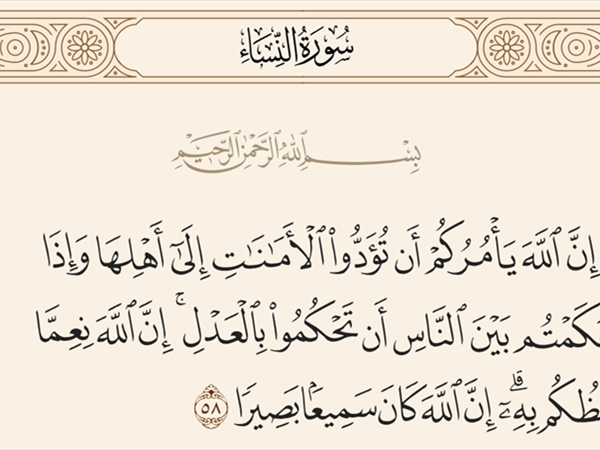 سُورَةُ النِّسَاءِ
بِسْمِ ٱللَّهِ ٱلرَّحْمَٰنِ ٱلرَّحِيمِ
إِنَّ ٱللَّهَ يَأْمُرُكُمْ أَن تُؤَدُّوا۟ ٱلْأَمَٰنَٰتِ إِلَىٰٓ أَهْلِهَا وَإِذَا
كَمْتُم بَيْنَ ٱلنَّاسِ أَن تَحْكُمُوا۟ بِٱلْعَدْلِ ۚ إِنَّ ٱللَّهَ نِعِمَّا
ظُكُم بِهِۦٓ ۗ إِنَّ ٱللَّهَ كَانَ سَمِيعًۢا بَصِيرًا ٥٨